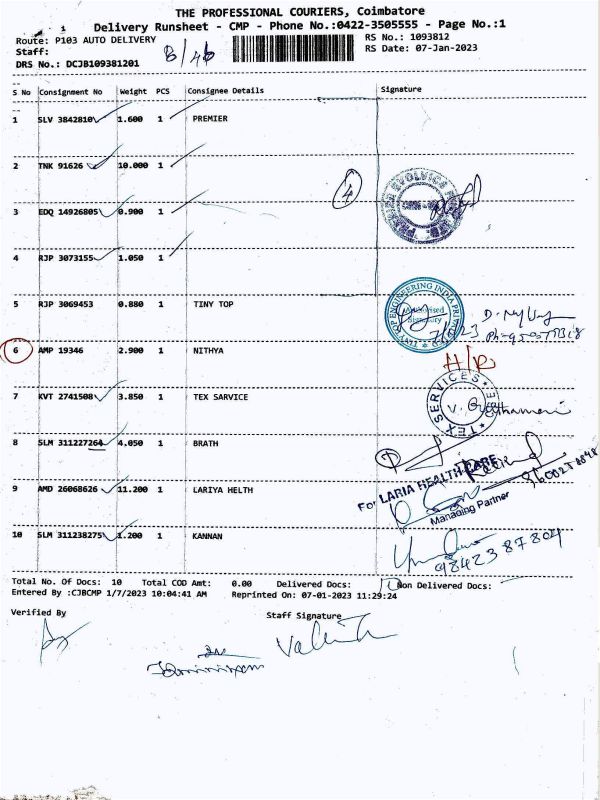 THE PROFESSIONAL COURIERS, Coimbatore
1 Delivery Runsheet - CMP - Phone No.:0422-3505555 - Page No.:1
Route: P103 AUTO DELIVERY
RS No.: 1093812
Staff:
RS Date: 07-Jan-2023
DRS No.: DCJB109381201
B/46
S No Consignment No Weight PCS Consignee Details Signature
1 SLV 3842810 1.600 1 PREMIER
2 TNK 91626 10.000 1
4
3 EDQ 14926805 0.900 1
4 RJP 3073155 1.050 1
5 RJP 3069453 0.880 1 TINY TOP
TINY TOP ENGINEERING INDIA
Authorised Signatory
6 AMP 19346 2.900 1 NITHYA
H/R
7 KVT 2741508 3.850 1 TEX SARVICE
TEX SERVICES
8 SLM 311227264 4.050 1 BRATH
9 AMD 26068626 11.200 1 LARIYA HELTH
For LARIA HEALTH CARE
Managing Partner
10 SLM 311238275 1.200 1 KANNAN
98423 87804
Total No. Of Docs: 10 Total COD Amt: 0.00 Delivered Docs: Non Delivered Docs:
Entered By :CJBCMP 1/7/2023 10:04:41 AM Reprinted On: 07-01-2023 11:29:24
Verified By Staff Signature